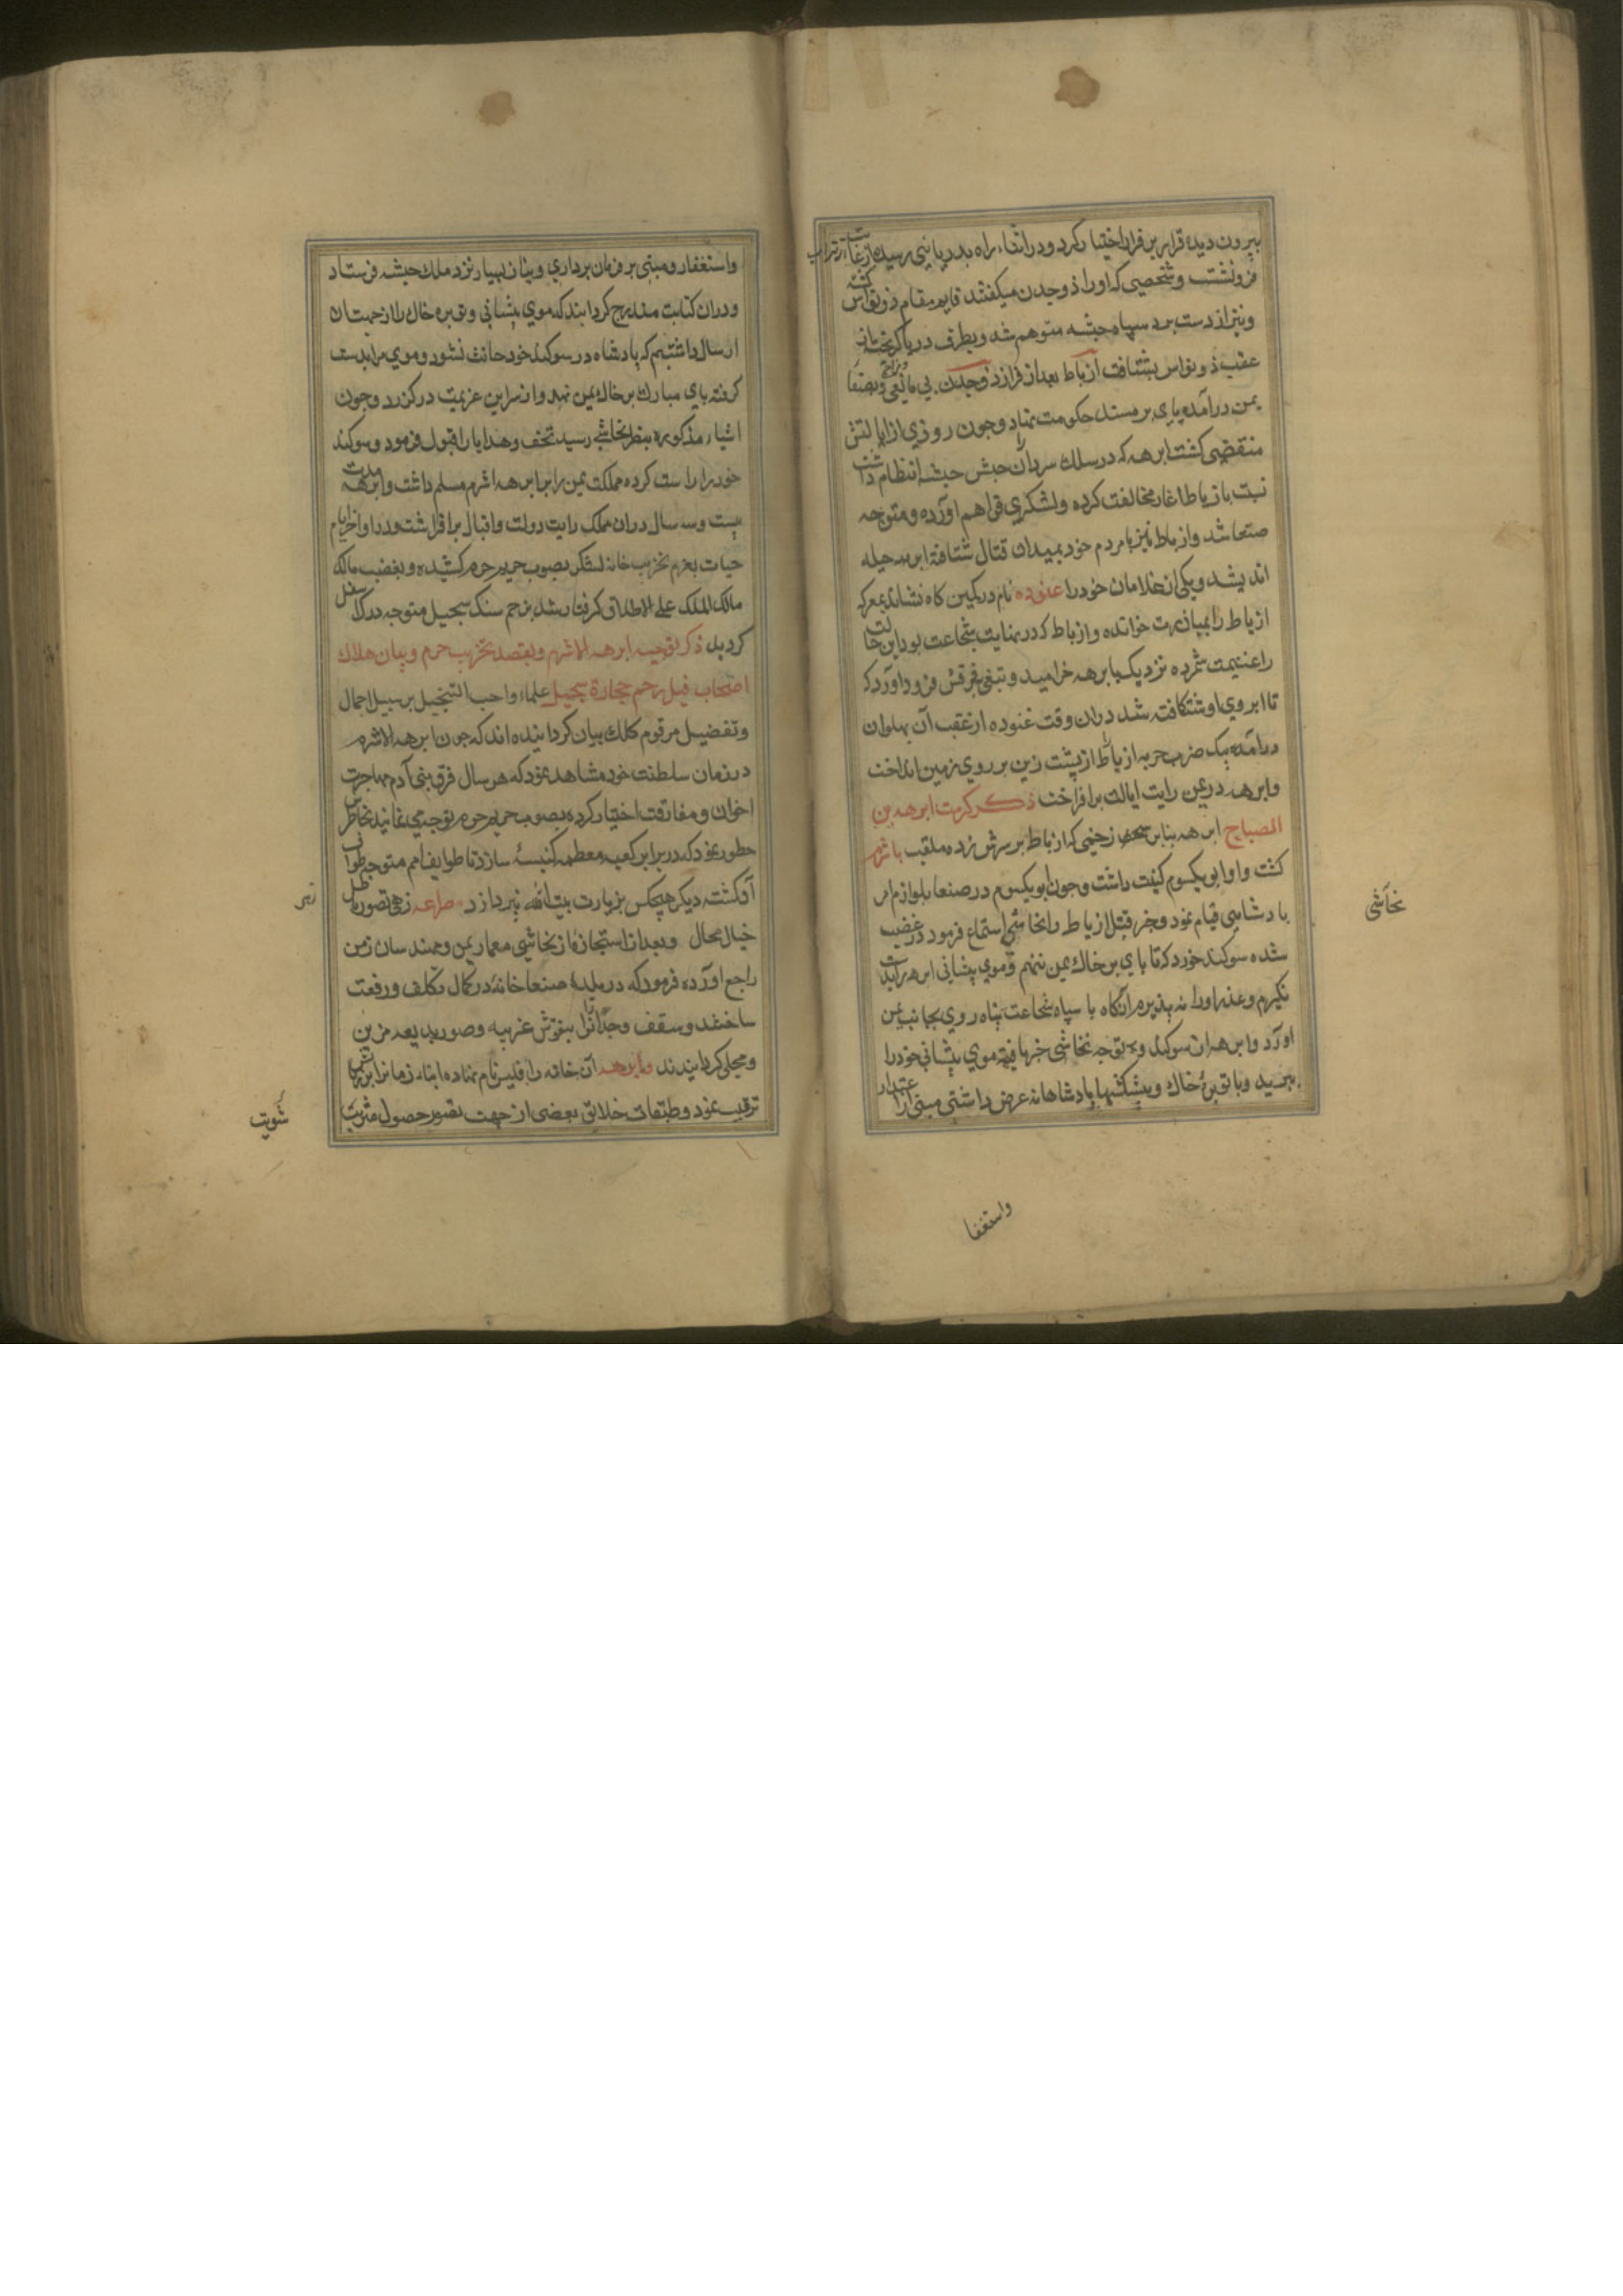 بیرون دیده قرار بر فرار اختیار کرد و در اثناء راه بدریائی رسیده از غایت
فرو نشست و شخصی که او را ذو جدن میکفتند قایم مقام ذو نواس کشته
و نیز از دست برد سپاه حبشه متوهم شد و بطرف دریا کریخته از
عقب ذو نواس بشتافت ازیاط بعد از فرار ذو جدن بی مانعی و بصنعا
یمن درآمده پای بر مسند حکومت نهاد و چون روزی از ایالتش
منقضی کشت ابرهه که در سلک سرداران جیش حبشه انتظام داشت
نسبت بازیاط اغاز مخالفت کرده و لشکری فراهم اورده و متوجه
صنعا شد و ازیاط نیز با مردم خود بمیدان قتال شتافته ابرهه حیله
اندیشید و یکی از غلامان خود را عنوده نام در کمین کاه نشانده بمعرکه
ازیاط را بمبارزت خوانده و ازیاط که در نهایت شجاعت بود این حالت
را غنیمت شمرده نزدیک بابرهه خرامید و تیغی بر فرقش فرود آورد که
تا ابروی او شکافته شد دران وقت عنوده از عقب آن پهلوان
درآمده بیک ضرب حربه ازیاط را از پشت زین بر روی زمین انداخت
و ابرهه در یمن رایت ایالت برافراخت ذکر حکومت ابرهه بن
الصباح ابرهه بنابر زخمی که ازیاط بر سرش زده ملقب باشرم
کشت و او ابو یکسوم کنیت داشت و چون ابو یکسوم در صنعا بلوازم امر
پادشاهی قیام نمود و خبر قتل ازیاط را نجاشی استماع فرمود در غضب
شده سوکند خورد که تا پای بر خاک یمن ننهم و موی پیشانی ابرهه را بدست
نکیرم و عذر او را نه پذیرم آنکاه با سپاه شجاعت پناه روی بجانب یمن
اورد و ابرهه ازان سوکند و توجه نجاشی خبر یافته موی پیشانی خود را
ببرید و با توبره خاک و پیشکشها پادشاهانه عرض داشتی مبنی از اعتذار
نجاشی
واستغفا
واستغفار و مبنی بر فرمان برداری و نیاز بسیار نزد ملک حبشه فرستاد
و دران کتابت مندرج کردانید که موی پیشانی و توبره خاک را از جهت ان
ارسال داشتیم که پادشاه در سوکند خود حانث نشود و موی مرا بدست
کرفته پای مبارک بر خاک یمن نهد و از سر این عزیمت درکذرد و چون
اشیاء مذکوره بنظر نجاشی رسید تحف و هدایا را قبول فرمود و سوکند
خود را راست کرده مملکت یمن را بر ابرهه اشرم مسلم داشت و ابرهه مدت
بیست و سه سال دران مملکت رایت دولت و اقبال برافراشت و در اواخر ایام
حیات بعزم تخریب خانه لشکر بصوب حریم حرم کشیده و بغضب مالک
مالک الملک علی الاطلاق کرفتار شد بزخم سنک سجیل متوجه درک اسفل
کردید ذکر توجه ابرهه الاشرم و بقصد تخریب حرم و بیان هلاک
اصحاب فیل بزخم حجارة سجیل علماء واجب التبجیل بر سبیل اجمال
و تفضیل مرقوم کلک بیان کردانیده اند که چون ابرهه الاشرم
در زمان سلطنت خود مشاهده نمود که هر سال فرق بنی آدم مهاجرت
اخوان و مفارقت اختیار کرده بصوب حریم حرم توجه می نمایند بخاطرش
خطور نمود که در برابر کعبه معظمه کنیسه سازد تا طوایف امم متوجه طواف
آن کشته دیکر هیچکس بزیارت بیت الله نپردازد مصراعه زهی تصور باطل
خیال محال و بعد از استجازه از نجاشی معمار یمن و مهندسان زمن
را جمع اورده فرمود که در بلده صنعا خانه در کمال تکلف و رفعت
ساختند و سقف و جدارانرا بنقوش غریبه و صور بدیعه مزین
و محلی کردانیدند و ابرهه آن خانه را قلیس نام نهاده ابناء زمانرا بزیارتش
ترغیب نمود و طبقات خلایق بعضی از جهت تصور حصول مثوبت
مثوبت